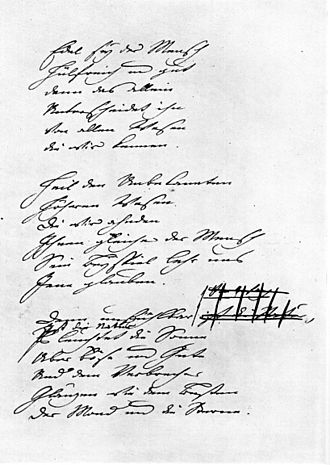 Edel sey der Mensch
Hülfreich u gut
denn das allein
Unterscheidet ihn
Von allen Wesen
die wir kennen.
Heil den Unbekannten
Höheren Wesen
Die wir ahnden
Ihnen gleiche der Mensch
Sein Beyspiel lehr uns
Jene glauben.
Denn unfühlbar
Ist die Natur
Es leuchtet die Sonne
Über Böse und Gute
Und dem Verbrecher
Glänzen wie dem Besten
Der Mond und die Sterne.